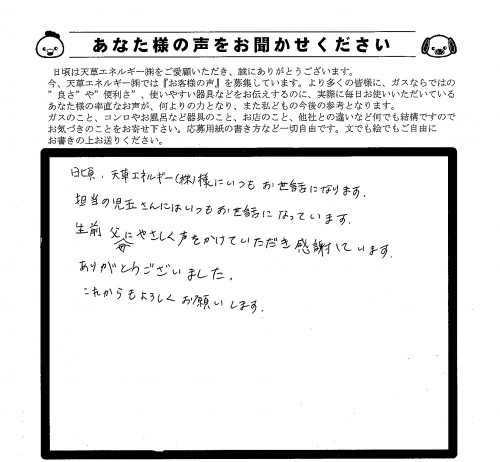 あなた様の声をお聞かせください
日頃は天草エネルギー㈱をご愛顧いただき、誠にありがとうございます。
今、天草エネルギー㈱では『お客様の声』を募集しています。より多くの皆様に、ガスならではの
"良さ"や"便利さ"、使いやすい器具などをお伝えするのに、実際に毎日お使いいただいている
あなた様の率直なお声が、何よりの力となり、また私どもの今後の参考となります。
ガスのこと、コンロやお風呂など器具のこと、お店のこと、他社との違いなど何でも結構ですので
お気づきのことをお寄せ下さい。応募用紙の書き方など一切自由です。文でも絵でもご自由に
お書きの上お送りください。
日頃、天草エネルギー(株)様にいつもお世話になります.
担当の児玉さんにはいつもお世話になっています.
生前 父にやさしく声をかけていただき感謝しています.
母
ありがとうございました.
これからもよろしくお願いします.